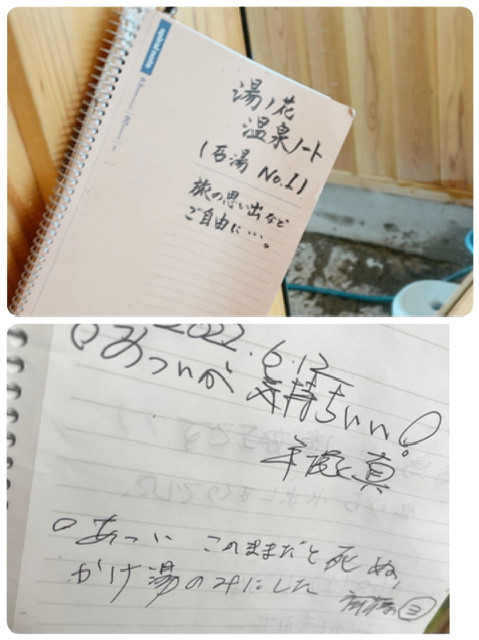 spiral note
湯ノ花
温泉ノート
(石湯 No.1)
旅の思い出など
ご自由に…。
2022.6.12
○あついが 気持ちいい!
○あつい このままだと死ぬ,
かけ湯のみにした